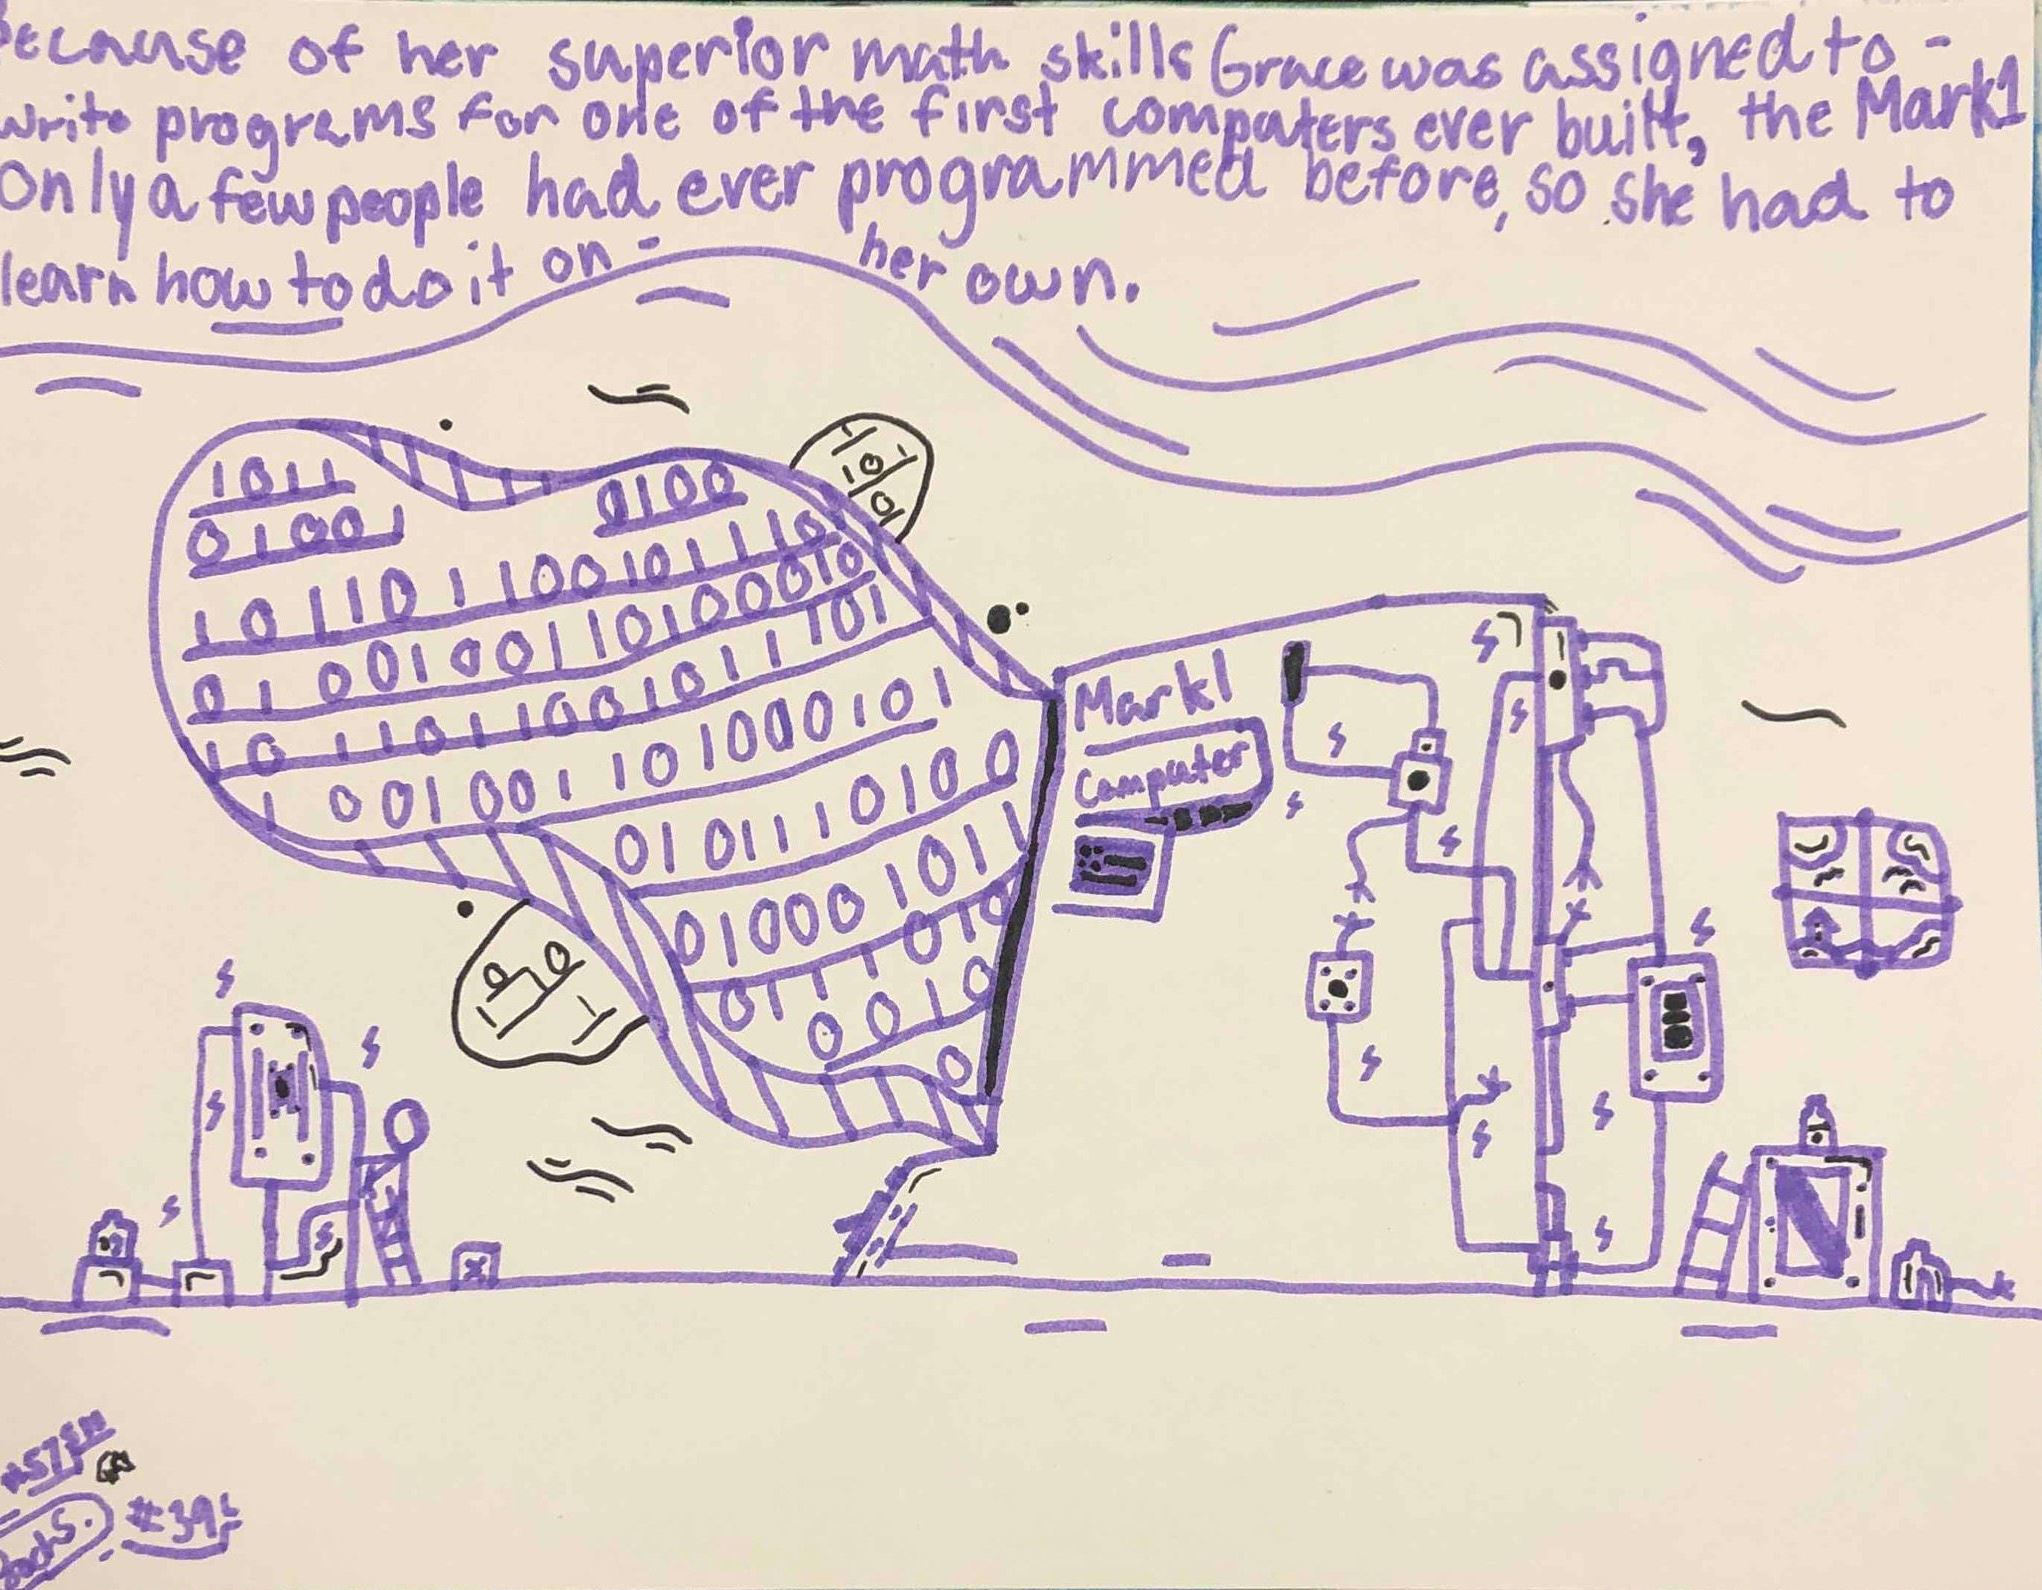 Because of her superior math skills Grace was assigned to -
write programs for one of the first computers ever built, the Mark1
Only a few people had ever programmed before, so she had to
learn how to do it on - her own.
1011
0100
01001
1011011001011101
0100100110100010
101101100101101
1001001101000101
01011110100
010001011
0111010
0010
0
Mark1
Computer